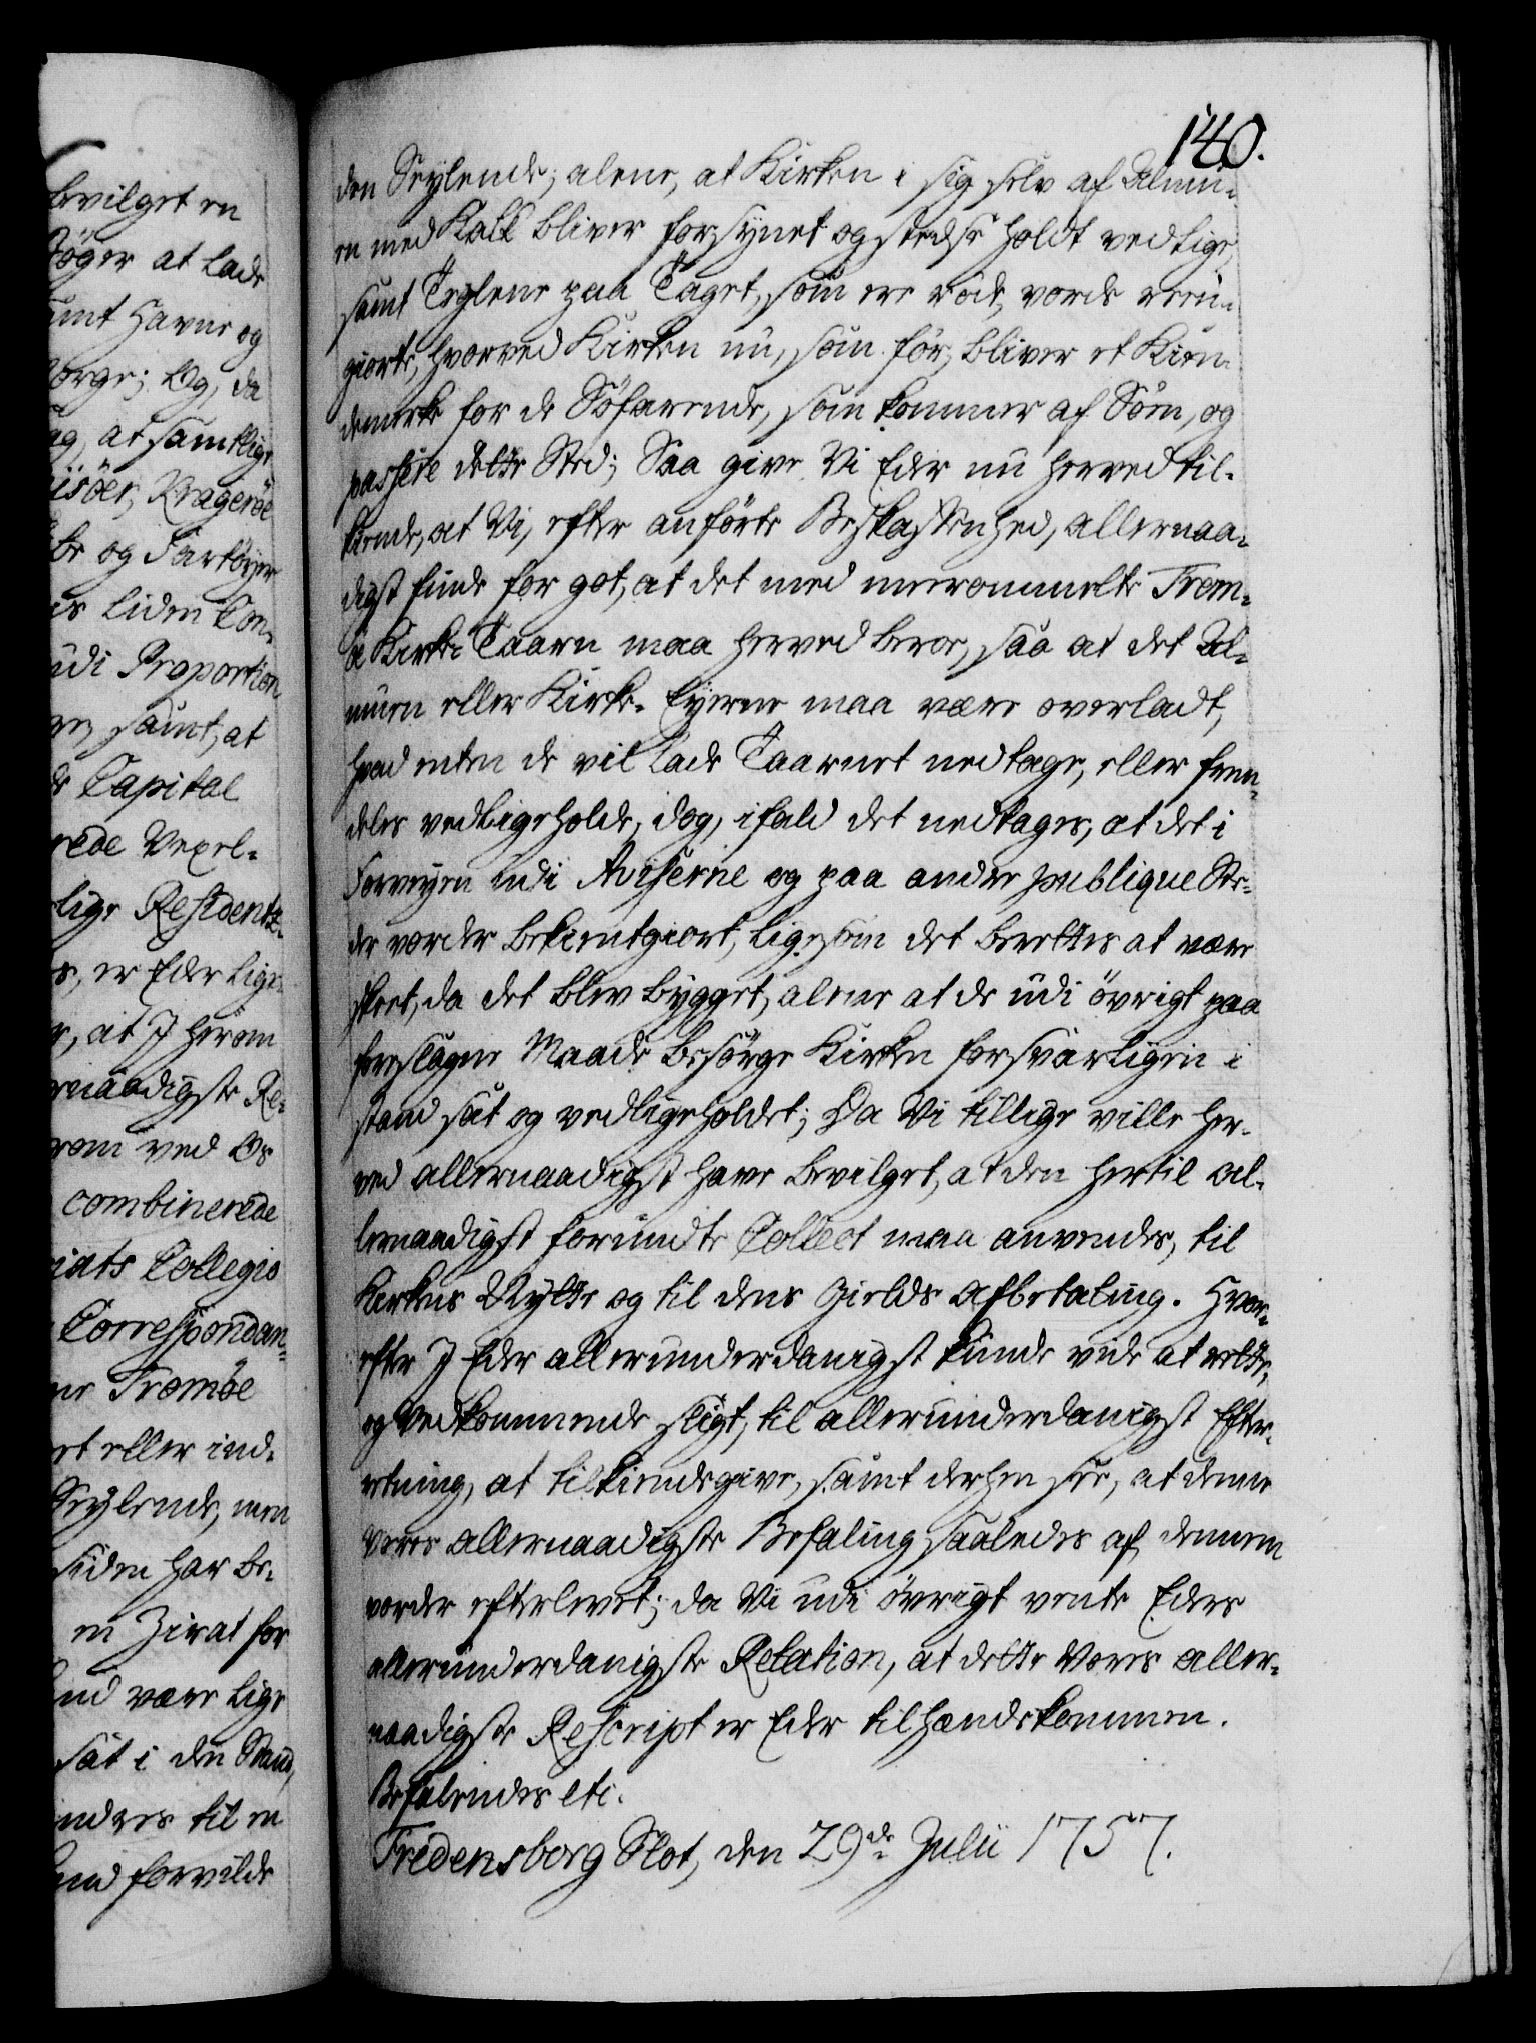 140.
den Seylende; alene, at Kirken i sig selv af Almu-
en med Kalk bliver forsynet og stedse holdt vedlige,
samt Teglene paa Taget, som ere röde, vorde reen-
giorte, hvorved Kirken nu, som för, bliver et Kien-
demerke for de Söfarende, som kommer af Söen, og
passere dette Sted; Saa give Vi Eder nu herved til-
kiende, at Vi, efter anförte Beskaffenhed, allernaa-
digst finde for got, at det med meerommelte Trom-
öe Kirke Taarn maa herved beroe, saa at det Al-
muen eller Kirke-Eyerne maa være overladt,
hvad enten de vil lade Taarnet nedtage, eller frem-
deles vedligeholde, dog, ifald det nedtages, at det i
Forveyen udi Aviserne og paa andre publique Ste-
der vorder bekientgiort, ligesom det berettes at være
skeet, da det blev bygget, alene at de udi övrigt paa
foreslagne Maade besörge Kirken forsvarligen i
stand sat og vedligeholdet; Da Vi tillige ville her-
ved allernaadigst have bevilget, at den hertil al-
lernaadigst forundte Collect maa anvendes, til
Kirkens Nytte og til dens Gields Afbetaling. Hvor-
efter I Eder allerunderdanigst kunde vide at rette,
og Vedkommende sligt, til allerunderdanigst Efter-
retning, at tilkiendegive, samt derhen see, at denne
Vores allernaadigste Befaling saaledes af dennem
vorder efterlevet; da Vi udi övrigt vente Eders
allerunderdanigste Relation, at dette Vores aller-
naadigste Rescript er Eder tilhændekommen.
Befalendes etc.
Fredensborg Slot, den 29de Julii 1757.
bevilget en
Söger at lade
samt Havne og
Norge; Og, da
at samtlige
Risöer, Krageröe
og Fartöyer
liden Con-
udi Proportion
samt, at
Capital
Vexel-
lige Residentz-
er Eder lige-
at I herom
ernaadigste Re-
ved Os
combinerede
Collegio
Correspondan-
Tromöe
et eller ind-
Seylende, men
siden har be-
en Zirat for
være lige
sat i den Stand,
endres til en
forvilde